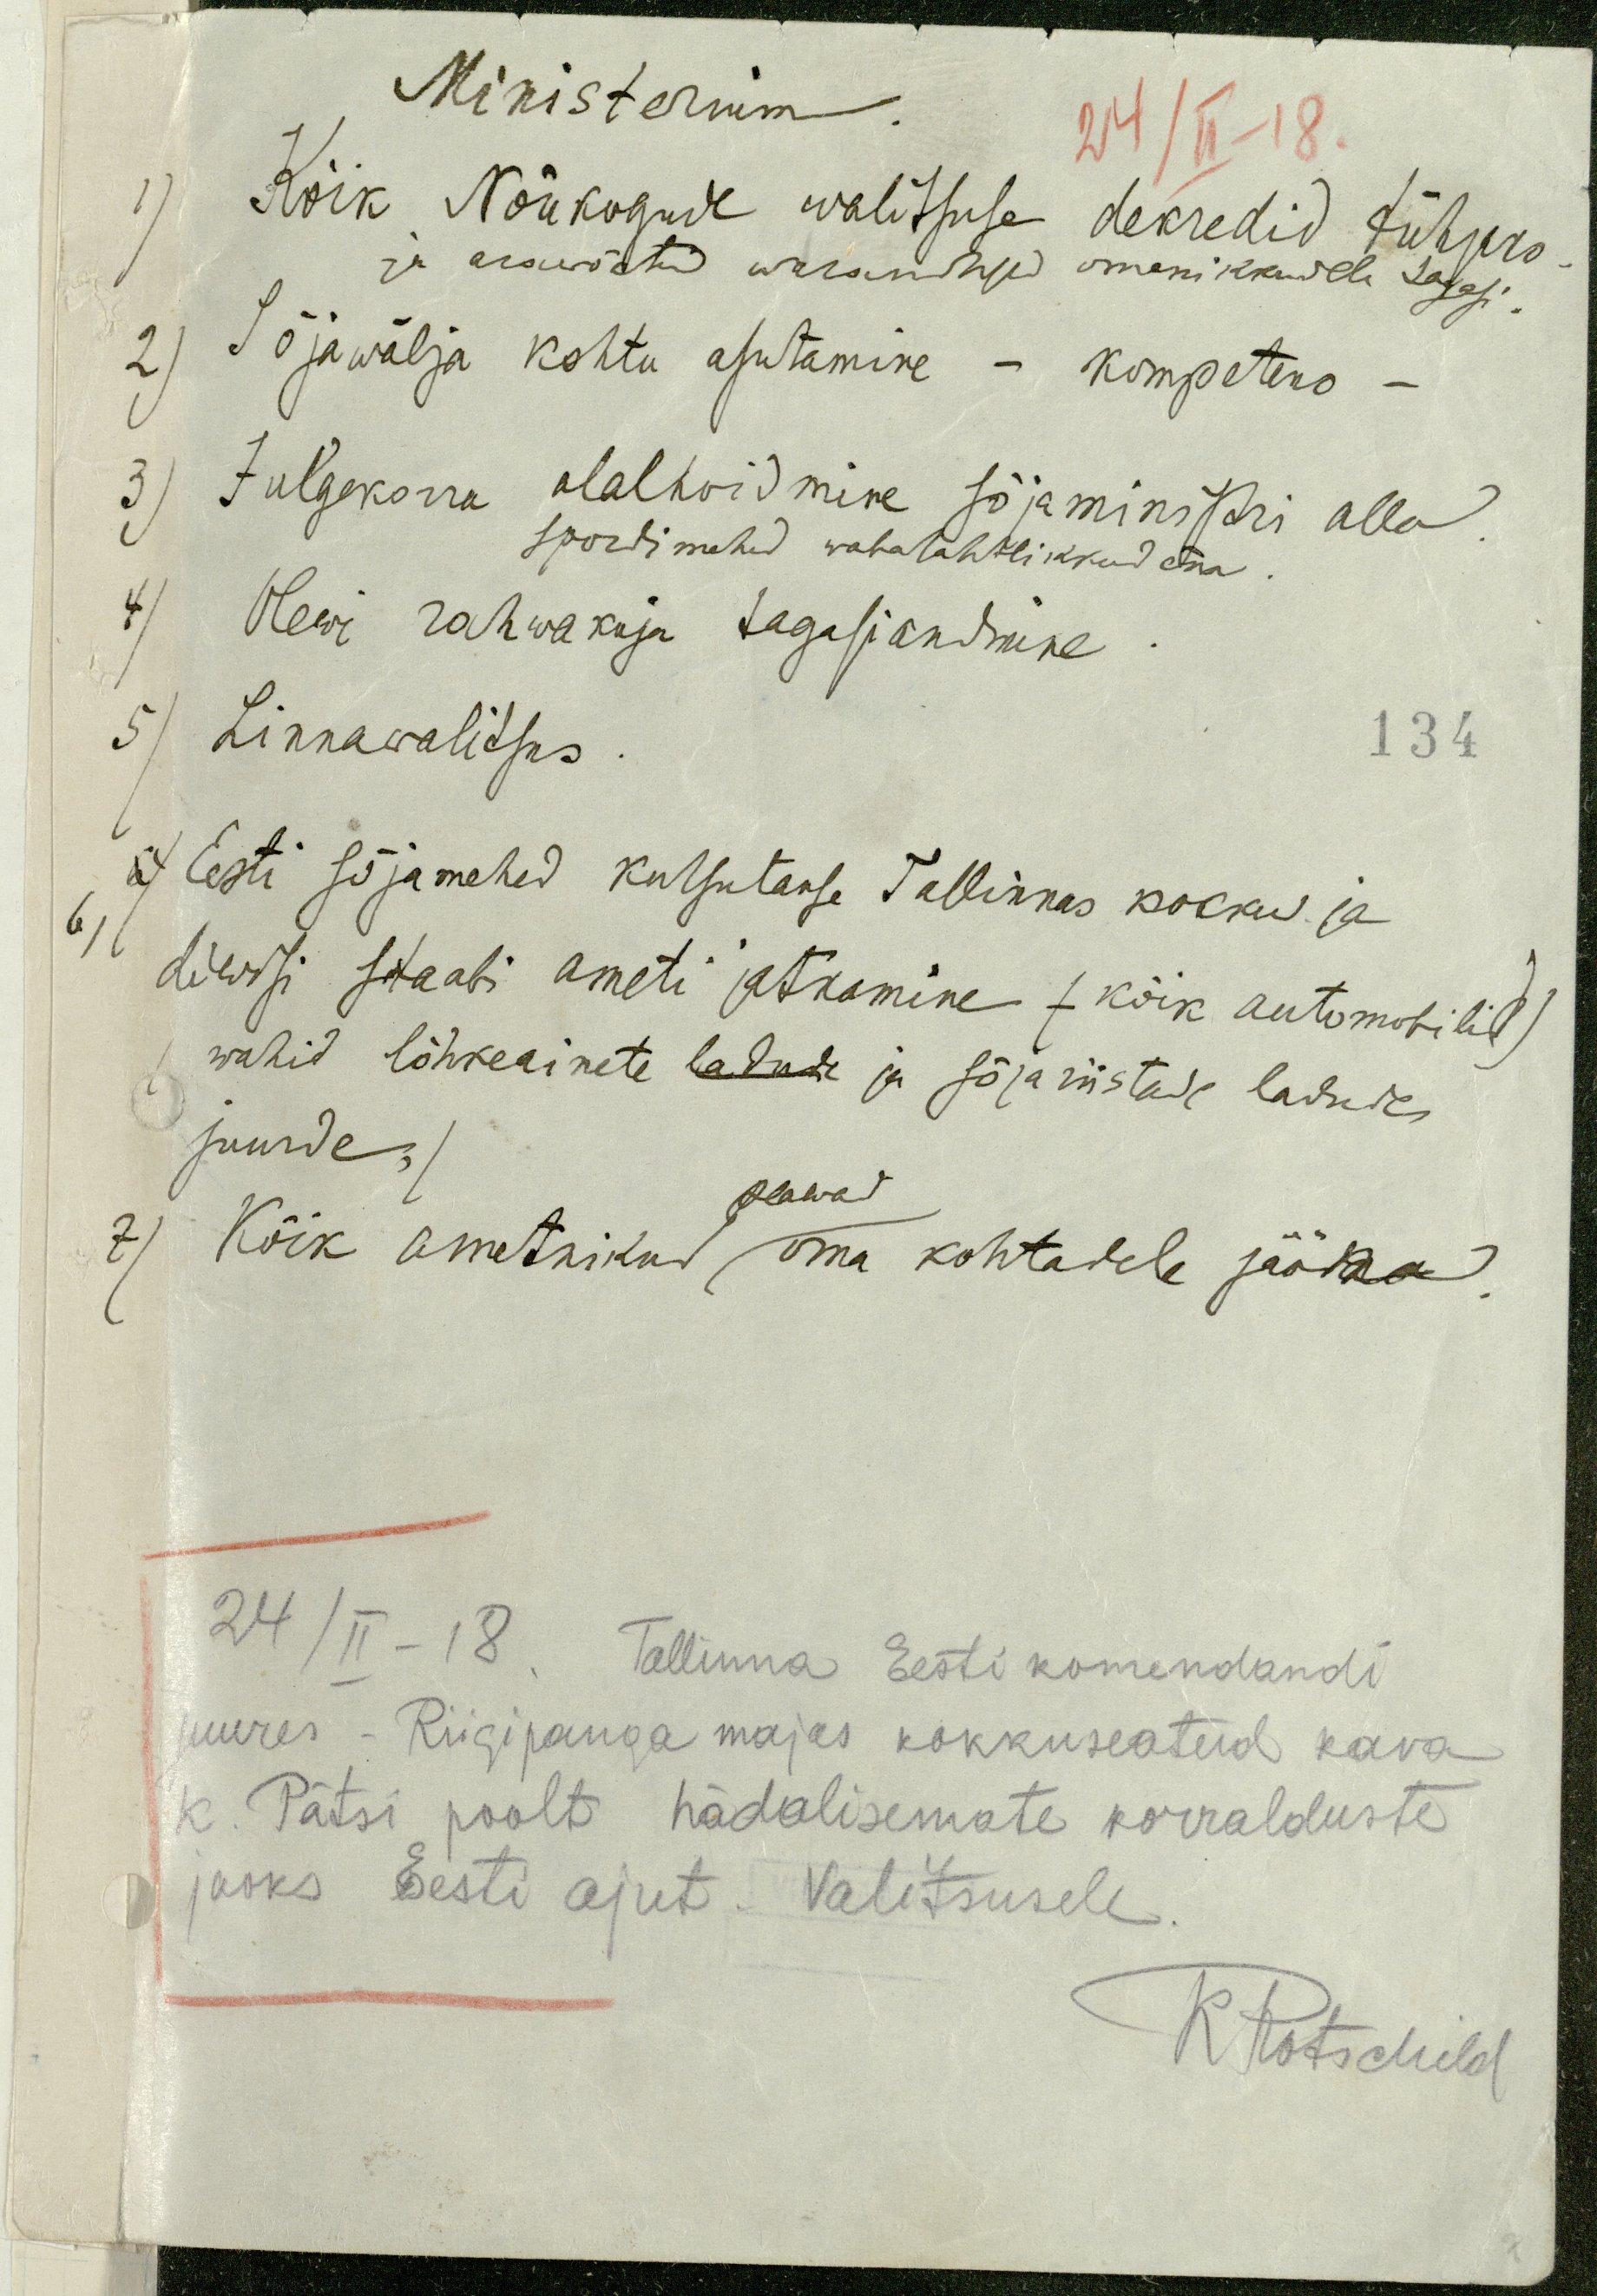 Ministerium.
24/II-18.
1) Kõik Nõukogude walitsuse dekredid tühjaks -
ja arawõetud warandused omanikkudele tagasi.
2) Sõjawälja kohtu asutamine - kompetens -
3) Julgekorra alalhoidmine sõjaministri alla.
spordimehed wabatahtlikkudena.
4) rahwakuja tagasiandmine.
5) Linnawalitsus.
134
6) Eesti sõjamehed kutsutakse Tallinnas kokku ja
diwisi staabi ameti jatkamine (kõik automobilid)
wahid lõhkeainete ladude ja sõjariistade ladude
juurde.)
peawad
7) Kõik ametnikud oma kohtadele jääma.
24/II-18. Tallinna Eesti komendandi
juures - Riigipanga majas kokkuseatud kava
K. Pätsi poolt hädalisemate korralduste
jaoks Eesti ajut. Valitsusele.
K Rotschild